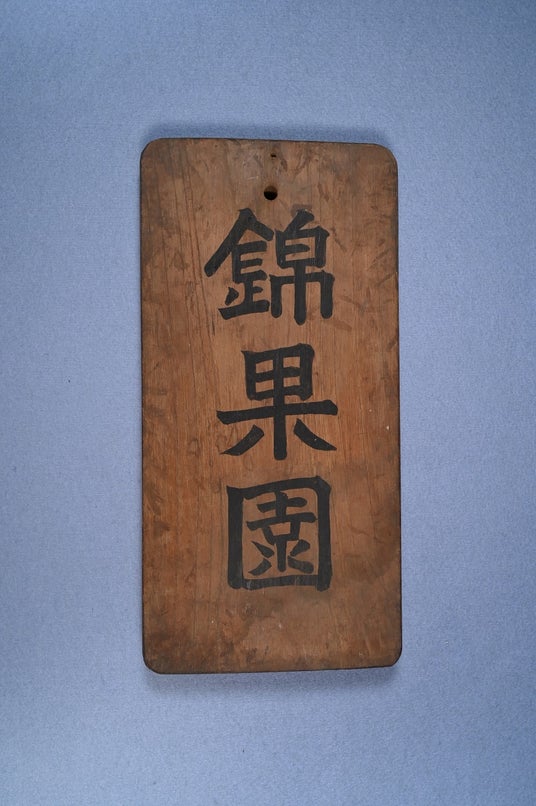 錦果園